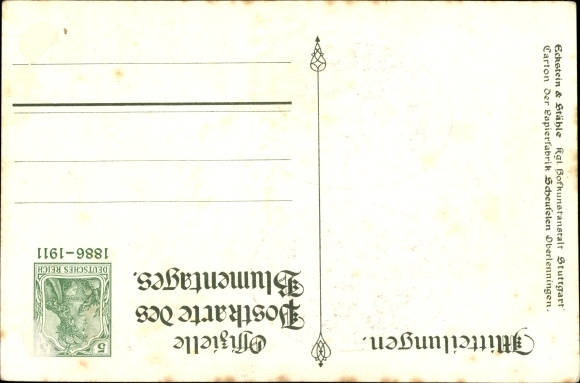 Mitteilungen.
Offizielle
Postkarte des
Blumentages.
5 5
DEUTSCHES REICH
1886-1911
Eckstein & Stähle Kgl. Hofkunstanstalt Stuttgart
Carton der Papierfabrik Scheufelen Oberlenningen.